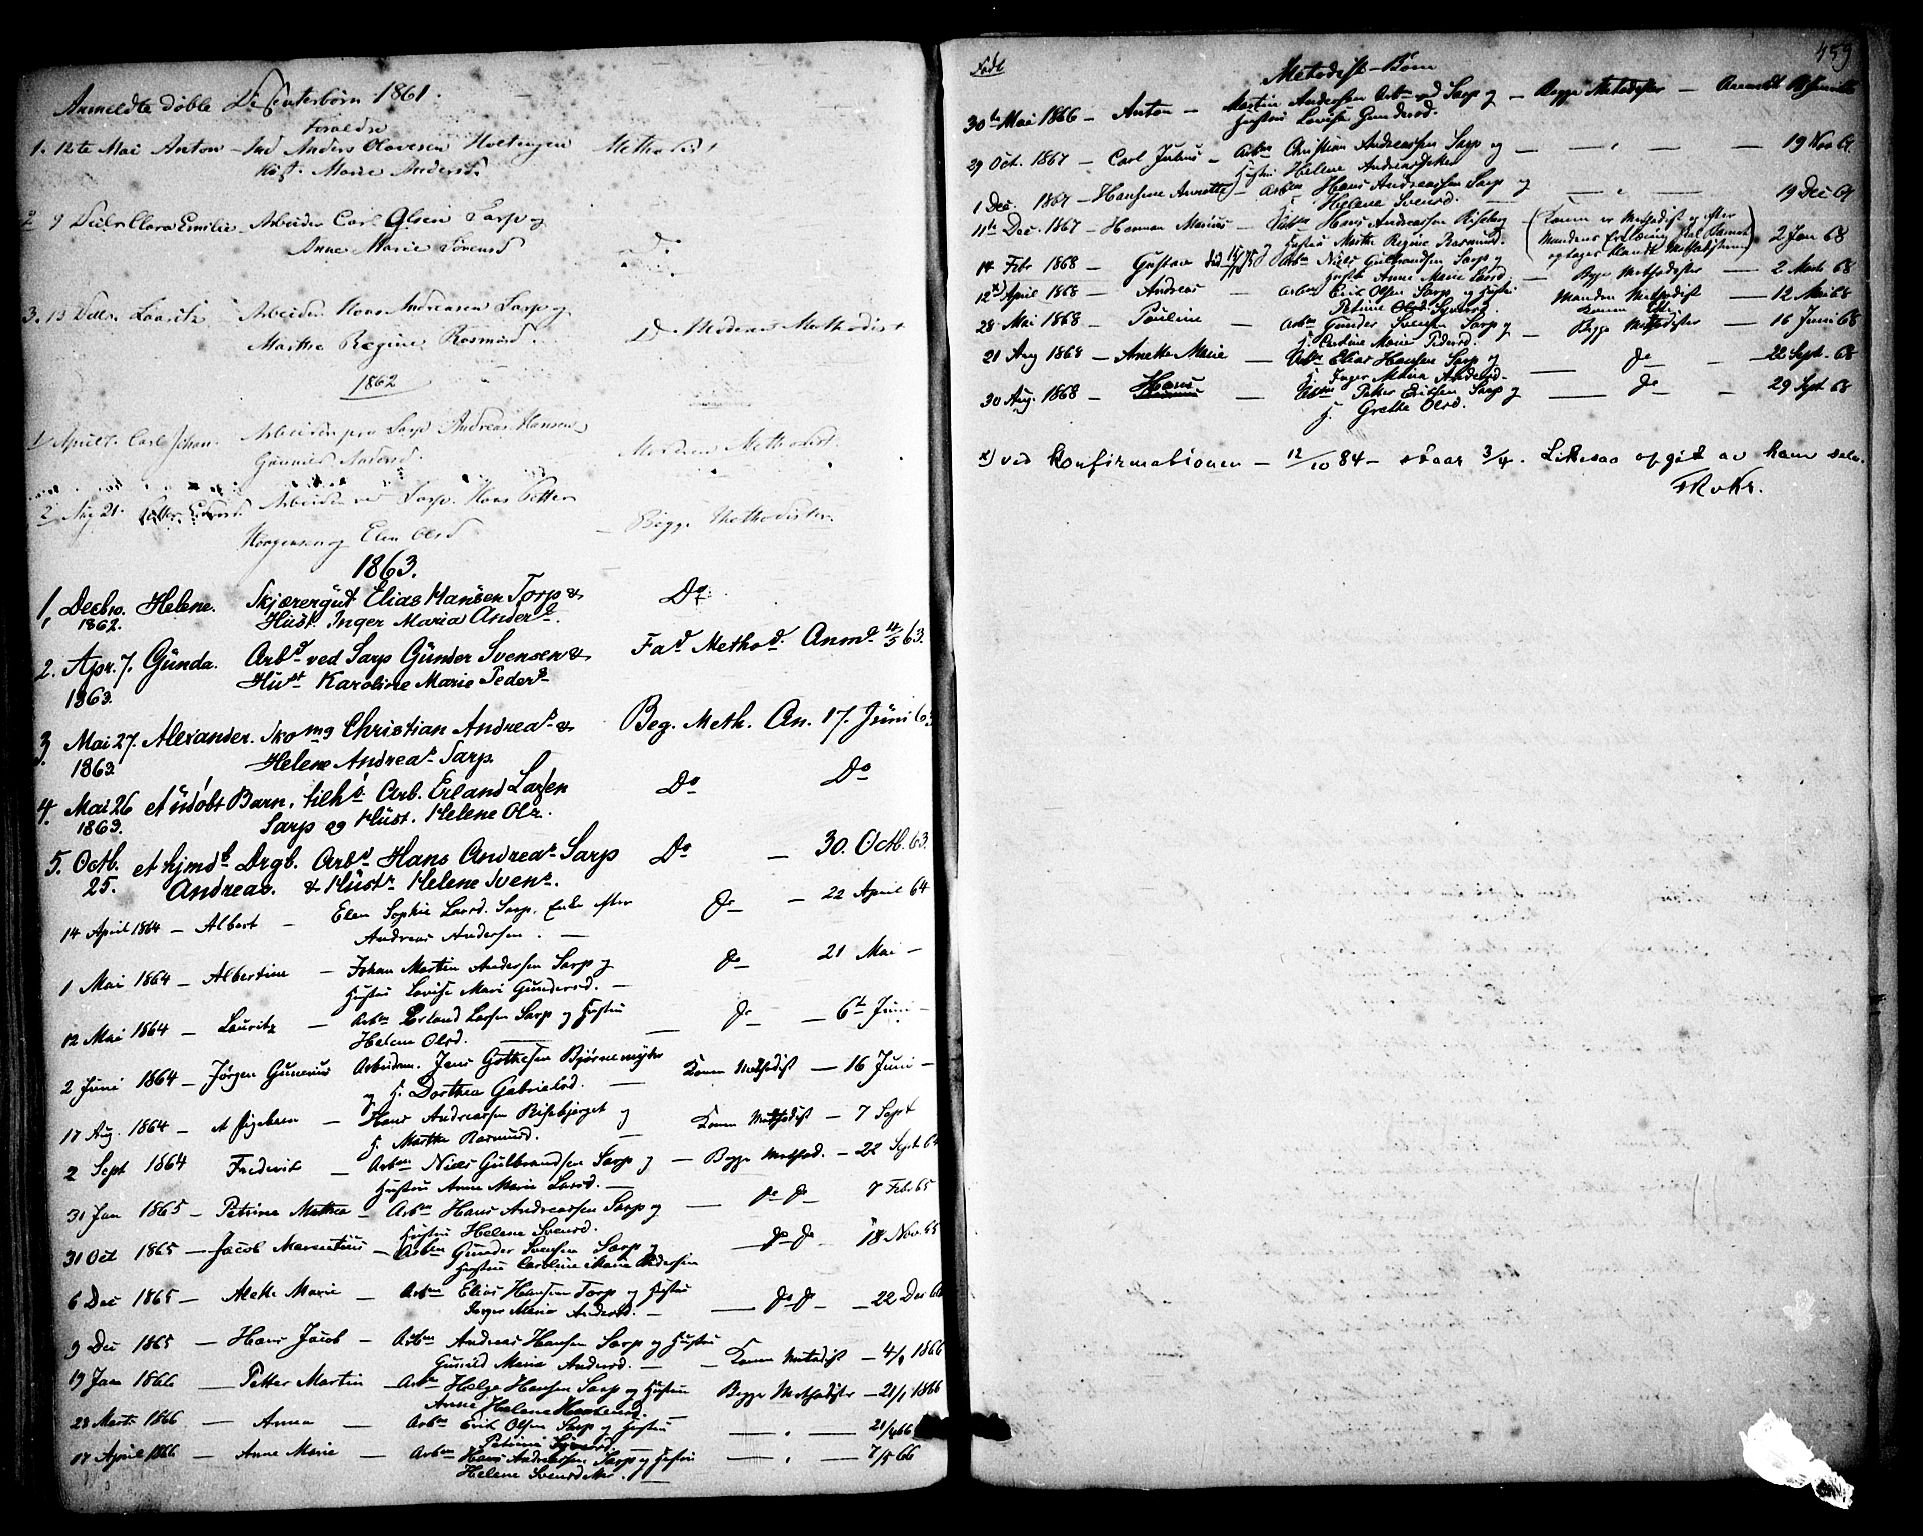 Anmeldte døbte Dissenterbørn 1861.
Foreldre
1. 12te Mai Anton - Ind Anders Olavesen Methodist
Hust. Marie Andersd.
2. 9 Clara Emilie Arbeider Carl Olsen Sarp og Do
Anne Marie Sørensd
3. 13 Lauritz Arbeider Hans Andreasen Sarp og Do Moderen Methodist
Marthe Regine Rasmusd.
1862
1 April Carl Johan Arbeider paa Sarp Andreas Hansen, Moderen Methodist.
Gunnild Andersd.
2 Aug 21. Arbeider ved Sarp. Hans Petter
og Elen Olsd Begge Methodister.
1863.
1, Decbr. Helene. Skjærergut Elias Hansen Torp & Do
1862. Hust. Inger Maria Anders
2. Apr. 7. Gunda. Arbd ved Sarp Gunder Svensen & Fad Method. Anmd 11/5 63.
1863. Hust Karoline Marie Peders
3. Mai 27. Alexander. Skomg Christian Andreas & Beg. Meth. An. 17. Juni 63
1863 Helene Andreas Sarp.
4. Mai 26 et udøbt Barn, tilhø. Arb. Erland Larsen Do Do
1863. Sarp og Hust. Helene Ols.
5. Octb. et hjmdb Drgb. Arbd Hans Andreas Sarp Do — 30. Octb. 63.
25. Andreas. & Hustr Helene Svens.
14 April 1864 — Albert — Elen Sophie Larsd. Sarp, Enke efter do — 22 April 64
Andreas Andersen. —
1 Mai 1864 — Albertine — Johan Martin Andersen Sarp og do — 21 Mai —
Hustru Lovise Mari Gundersd. —
12 Mai 1864 — Lauritz — Arbm Erland Larsen Sarp og Hustru do — 6te Juni —
Helene Olsd.
2 Juni 1864 — Jørgen Gunerius Arbeidsm. Jens Gothesen Bjørnemyhr Konen Methodist — 16 Juni —
og H. Dorthea Gabrielsd. —
17 Aug. 1864 — et Pigebarn — Hans Andreassen Risebjerget og Konen Methodist — 7 Sept
H. Marthe Rasmusd. —
2 Sept 1864 Frederik — Arbm Niels Gulbrandsen Sarp og — Begge Method. — 22 Sept 64
Hustru Anne Marie Larsd. —
31 Jan 1865 — Petrine Mathea — Arbm Hans Andreassen Sarp og — do do — 7 Feb 65
Hustru Helene Svensd.
31 Oct 1865 — Jacob Marentius — Arbm Gunder Svensen Sarp og — do do — 18 Nov. 65
Hustru Caroline Marie Pedersen
6 Dec 1865 — Alette Marie — Arbm Elias Hansen Torp og Hustru
Inger Marie Andersd. — do do — 22 Dec
9 Dec 1865 — Hans Jacob — Arbm Andreas Hansen Sarp og Hustru
Gunild Marie Andersd. — Konen Metodist — 1866
19 Jan 1866 — Petter Martin — Arbm Helge Hansen Sarp og Hustru Begge Methodister — 21/1 1866
Anne Helene
28 Marts 1866 — Anna — Arbm Erik Olsen Sarp og Hustru — " — 21/4 66
Petrine
17 April 1866 — Anne Marie — Arbm Hans Andreassen Sarp og Hustru — " — 7/5 66
Helene Svensdatter. —
459
Født Metodist-Børn
30te Mai 1866 — Anton — Martin Andersen Arbm ved Sarp og — Begge Metodister — Anmeldt
Hustru Lovise Gundersd.
29 Oct. 1867 — Carl Julius — Arbm Christian Andreassen Sarp og — " — 19 Nov 67
Hustru Helene Andreasdatter
1 Dec. 1867 — Hansine Annette — Arbm Hans Andreassen Sarp og — " — 19 Dec 67
H. Helene Svensd. —
11te Dec. 1867 — Herman Marius — Arbm Hans Andreassen Riseberg (Konen er Methodist og efter
Hustru Marthe Regine Rasmusd. Mandens Erklæring skal Barnet 2 Jan 68
optages blandt Methodisterne)
14 Febr 1868 — Gustav Arbm Niels Gulbrandsen Sarp og
Hustru Anne Marie Larsd. — Begge Methodister — 2 Marts 68
12 x) April 1868 — Andreas — Arbm Erik Olsen Sarp og Hustru Manden Methodist — 12 Mai 68
Petrine Konen
28 Mai 1868 — Pauline — Arbm Gunder Svensen Sarp og — Begge Methodister — 16 Juni 68
H. Caroline Marie Pedersd.
21 Aug 1868 — Anette Marie — Arbm Elias Hansen Sarp og — do — 22 Sept. 68
H. Inger Maria Andersd. —
30 Aug. 1868 — Hans — Arbm Peter Ericksen Sarp og — do — 29 Sept 68
H. Grethe Olsd.
x) ved konfirmationen — 12/10 84 — staar 3/4. Likesaa opgit av ham selv.